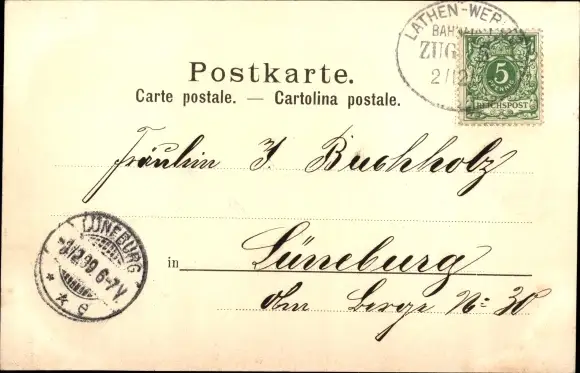 LATHEN-WER
BAH
ZUG 5
2/12
5
REICHSPOST
Postkarte.
Carte postale. — Cartolina postale.
Fräulein J. Buchholz
in Lüneburg
Am Berge No 30
LÜNEBURG
3/12.99 6-7V
* * e